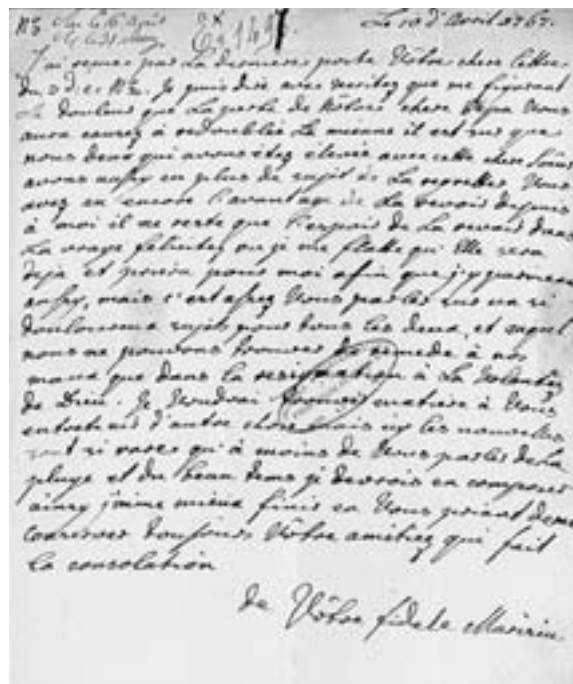 Le 10 d'Avril 1767.
J'ai reçue par La derniere poste Vôtre chere Lettre
du 3 d. c. N 2. Je puis dire avec veritez que me figurant
La douleur que La perte de Nôtre chere Pepa Vous
aura causez à redoublée La mienne il est sur que
nous deux qui avons étez élevée avec cette chere Sœur
avons aussy en plus de sujet de La regretter Vous
avez eu encore l'avantage de La revoir depuis
à moi il ne reste que l'espoir de La revoir dans
La vraye felicitez ou je me flatte qu'Elle sera
deja et priera pour moi afin que j'y parvienne
aussy, mais c'est assez Vous parler sur un si
douloureux sujet pour tous les deux, et auquel
nous ne pouvons trouver de remede à nos
maux que dans la resignation à La Volontez
de Dieu. Je Voudrai trouver matiere à Vous
entretenir d'autre chose mais icy les nouvelles
sont si rares qu'à moins de Vous parler de la
pluye et du beau tems je devrois en composer
ainsy j'aime mieux finir en Vous priant de me
conserver toujours Vôtre amitiez qui fait
La consolation
de Vôtre fidele